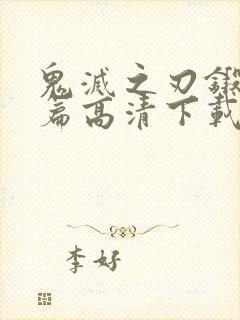 鬼滅之刃鍛
篇高清下載
李好